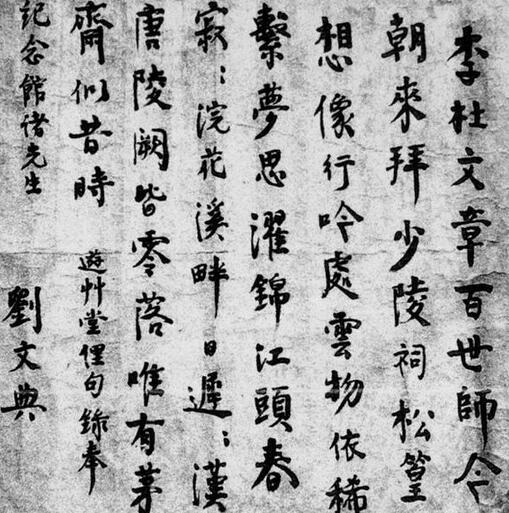 李杜文章百世師今
朝來拜少陵祠松篁
想像行吟處雲物依稀
繫夢思濯錦江頭春
寂：浣花溪畔日遲：漢
唐陵闕皆零落唯有茅
齋似昔時 遊艸堂俚句錄奉
紀念館诸先生
劉文典